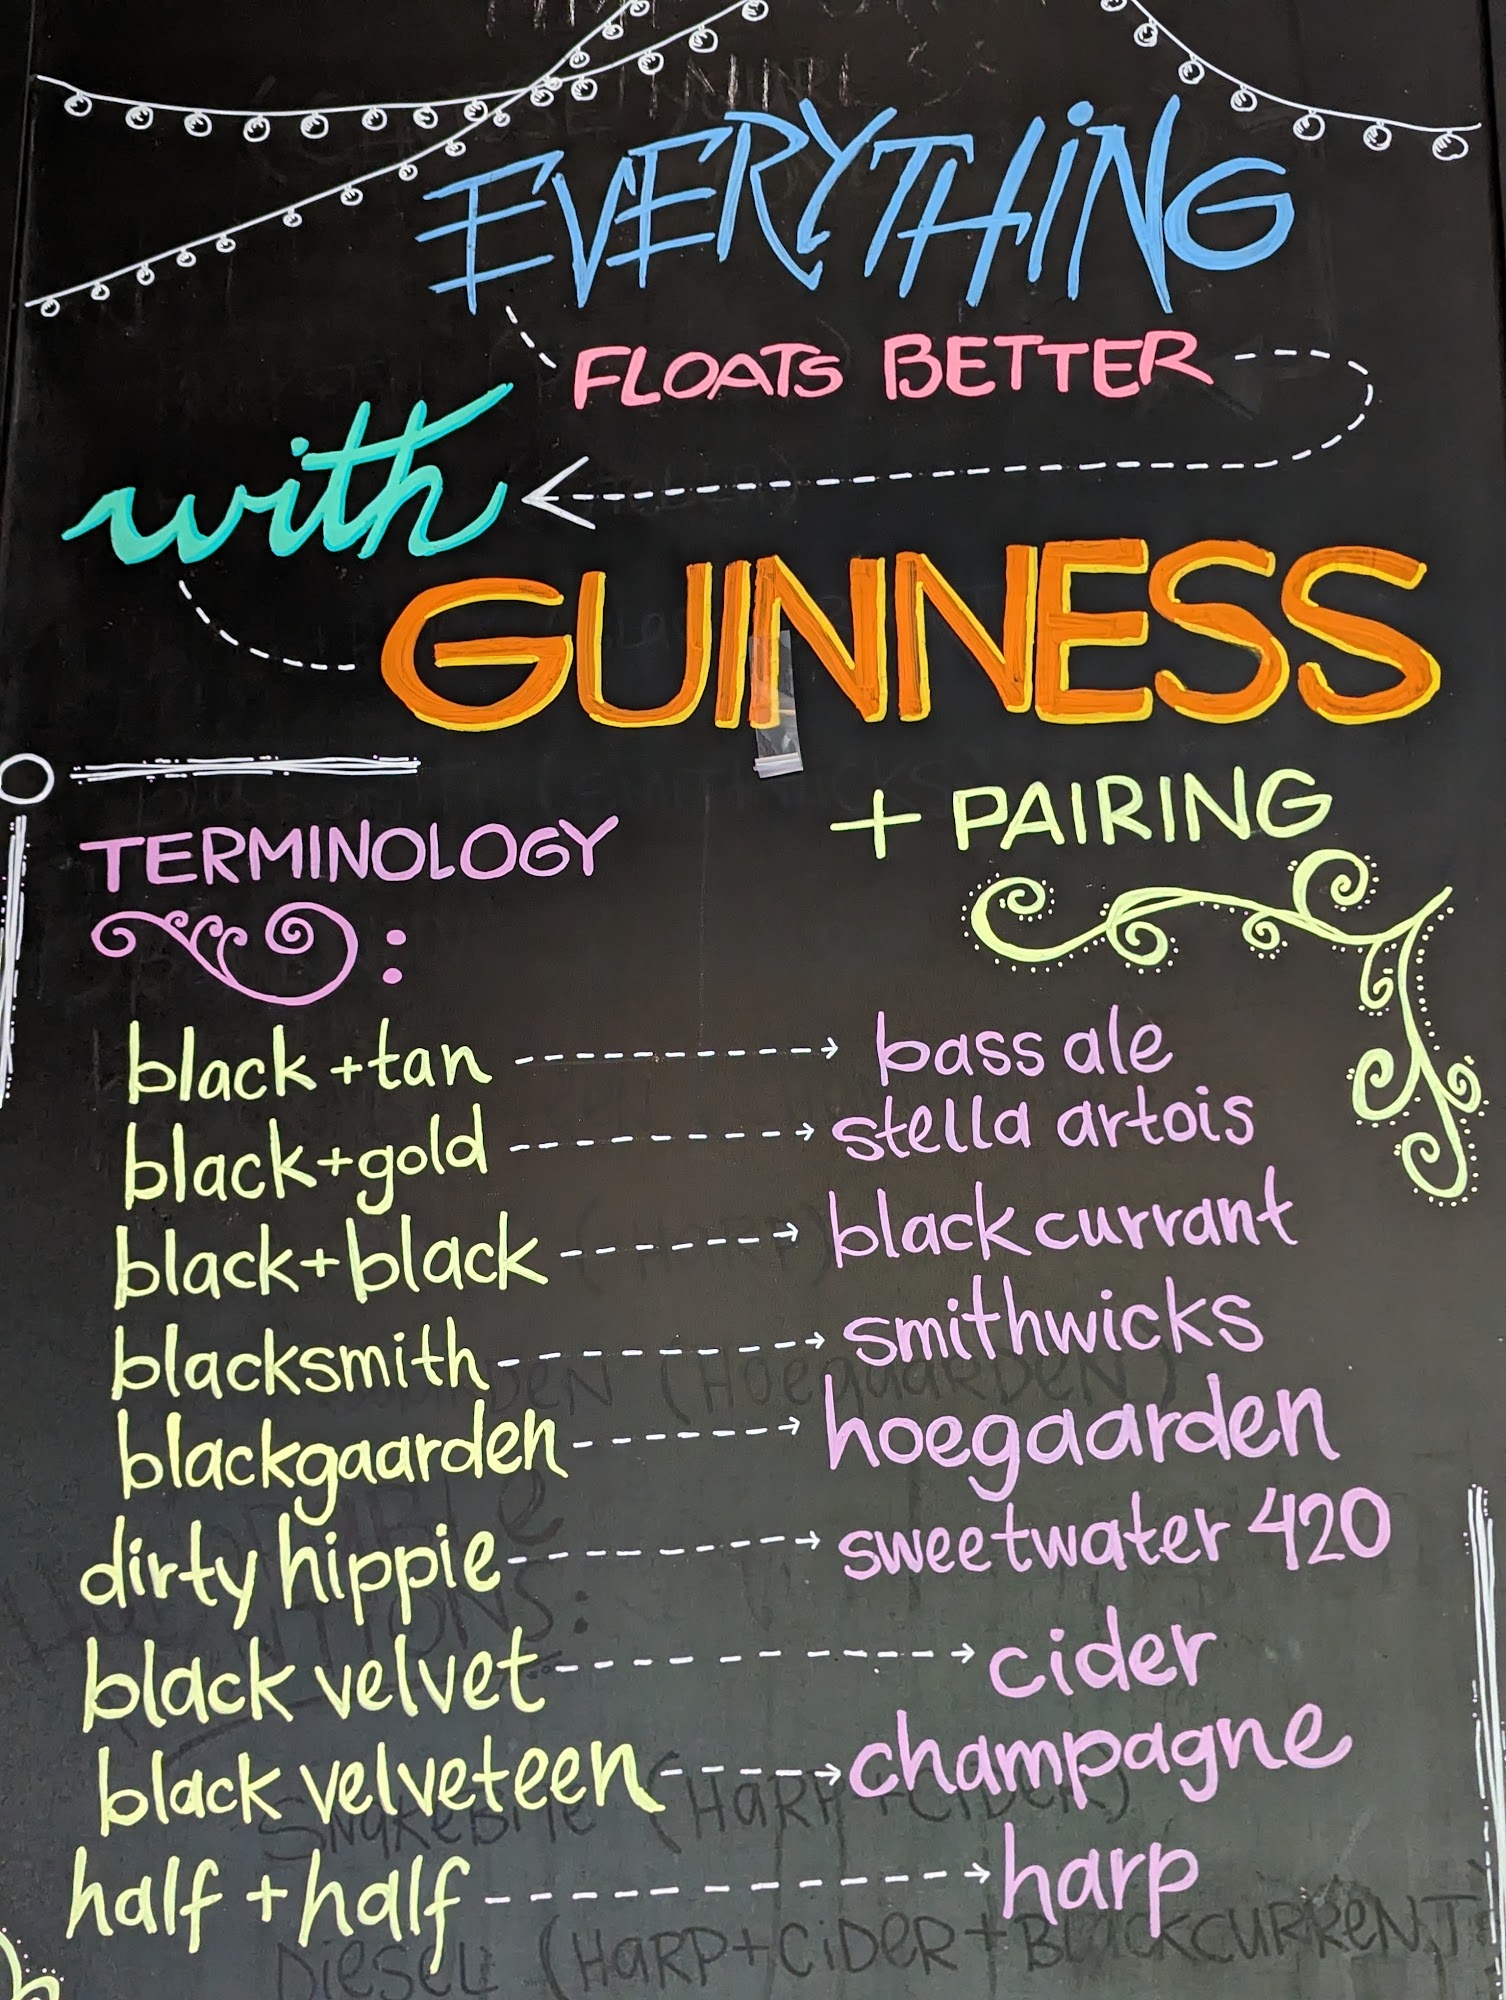 EVERYTHING
FLOATS BETTER
with
GUINNESS
TERMINOLOGY :
+ PAIRING
black + tan bass ale
black + gold stella artois
black + black black currant
blacksmith smithwicks
blackgaarden hoegaarden
dirty hippie sweetwater 420
black velvet cider
black velveteen champagne
half + half harp
(HARP)
(HOEGAARDEN)
SNAKEBITE (HARP + CIDER)
DIESEL (HARP + CIDER + BLACKCURRENT